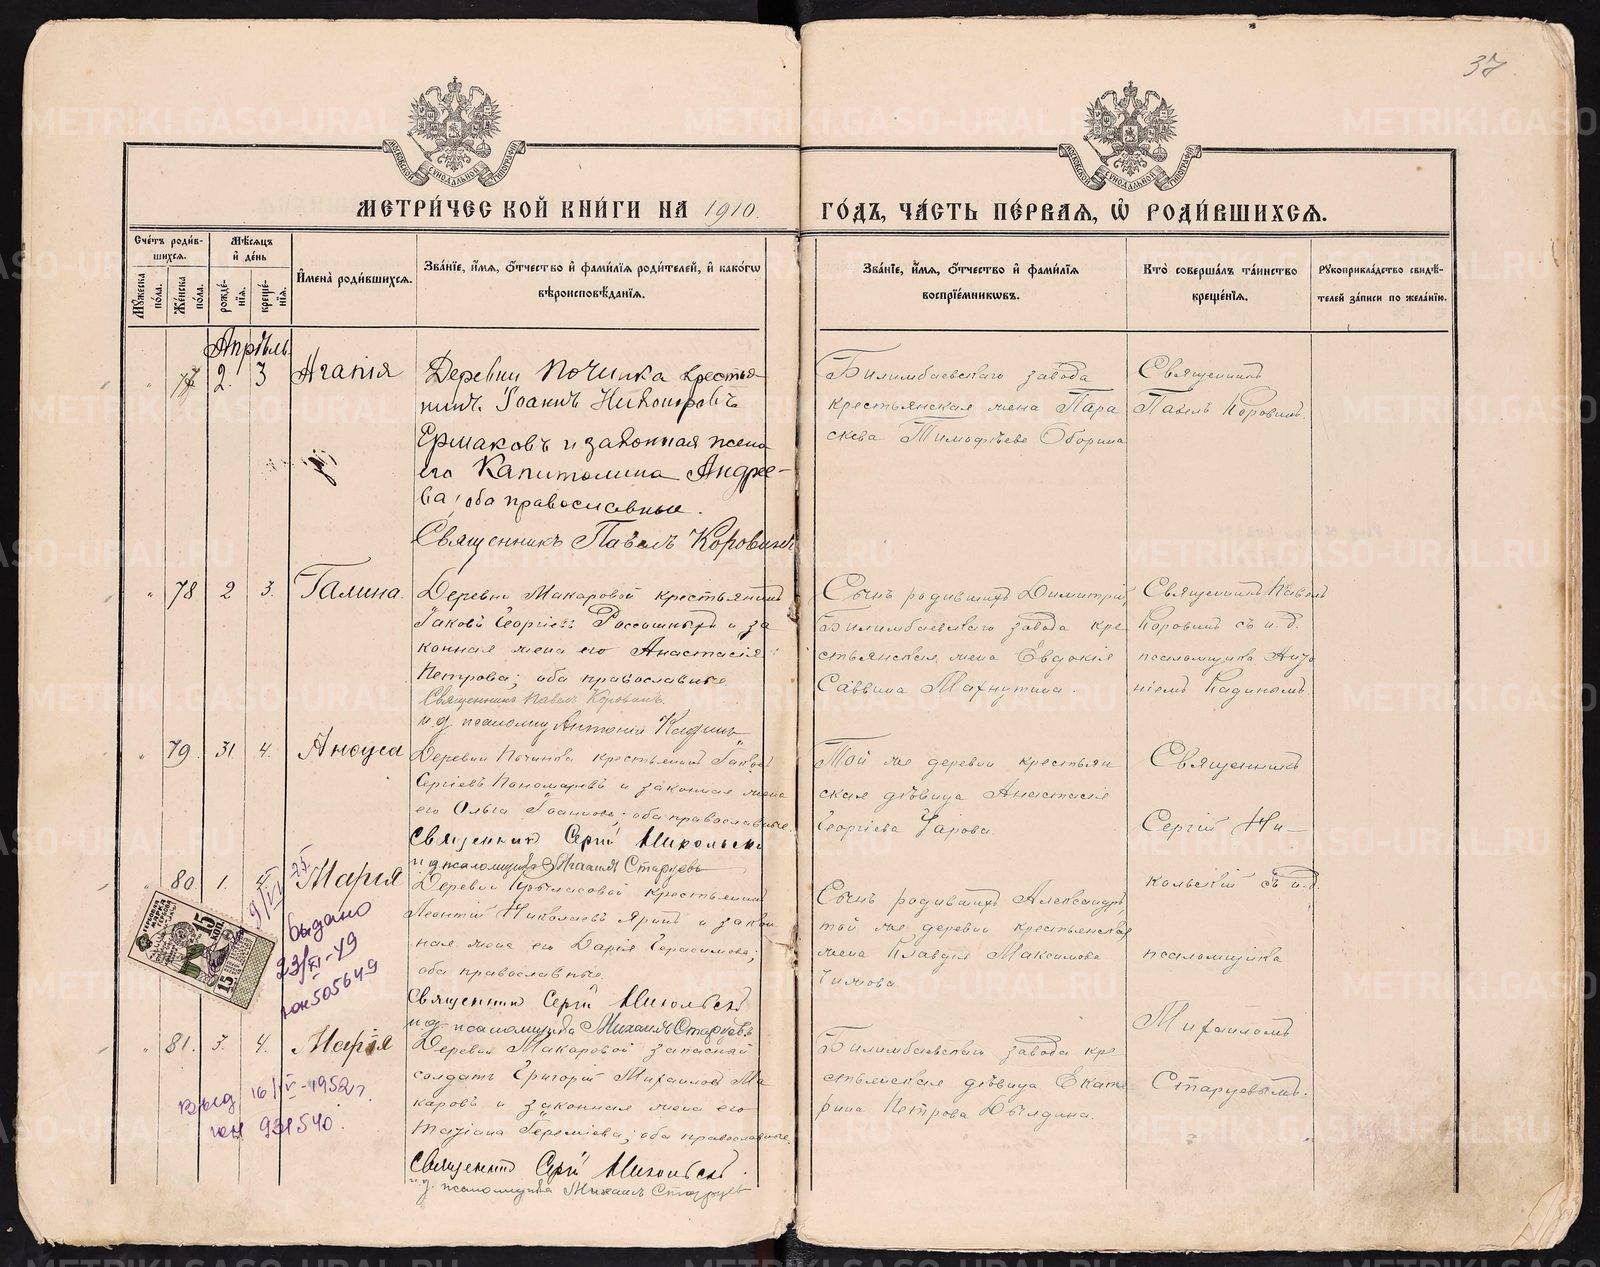 37
МОСКОВСКОЙ СѴНОДАЛЬНОЙ ТИПОГРАФІИ
МОСКОВСКОЙ СѴНОДАЛЬНОЙ ТИПОГРАФІИ
МЕТРИ́ЧЕСКОЙ КНИ́ГИ НА 1910.
ГО́ДЪ, ЧА́СТЬ ПЕ́РВАЯ, Ѡ҆ РОДИ́ВШИХСЯ.
Сче́тъ роди́в-
шихся.
Мѣ́сяцъ
и҆ де́нь
Му́жеска по́ла.
Же́нска по́ла.
рожде́-
нїя.
креще́-
нїя.
И҆мена̀ роди́вшихся.
Зва́нїе, и҆́мя, ѻ҆́тчество и҆ фами́лїя роди́телей, и҆ како́гѡ
вѣроисповѣ́данїя.
Зва́нїе, и҆́мя, ѻ҆́тчество и҆ фами́лїя
воспрїе́мниковъ.
Кто̀ соверша́лъ та́инство
креще́нїя.
Рукоприкла́дство свидѣ́-
телей за́писи по жела́нїю.
Апрѣль
" 77 2. 3 Агапія
Деревни Починка крестья-
нинъ Іоаннъ Никаноровъ
Ермаковъ и законная жена
его Капитолина Андрее-
ва; оба православные.
Священникъ Павелъ Коровинъ
Билимбаевскаго завода
крестьянская жена Пара
скева Тимофѣева Оборина
Священникъ
Павелъ Коровинъ.
" 78 2 3. Галина.
Деревни Макаровой крестьянинъ
Іаковъ Георгіевъ и за
конная жена его Анастасія
Петрова; оба православные
Священникъ Павелъ Коровинъ.
и.д. псаломщ Антоній Кадинъ
Сынъ родившихъ Димитрій,
Билимбаевскаго завода кре
стьянская жена Евдокія
Саввина Махнутина.
Священникъ Павелъ
Коровинъ съ и.д.
псаломщика Анто
ніемъ Кадинымъ.
" 79 31 4. Анфуса
Деревни Починка крестьянинъ Іаковъ
Сергіевъ Пономаревъ и законная жена
его Ольга Іоаннова; оба православные.
Священникъ Сергій Никольскій
и.д. псаломщика Михаилъ Старцевъ
Той же деревни крестьян
ская дѣвица Анастасія
Георгіева
Священникъ
Сергій Ни-
кольскій съ и.д.
псаломщика
Михаиломъ
Старцевымъ.
" 80 1. Марія
Деревни Крыласовой крестьянинъ
Леонтій Николаевъ Яринъ и закон
ная жена его Дарія Герасимова;
оба православные.
Священникъ Сергій Никольскій
и.д. псаломщика Михаилъ Старцевъ
Сынъ родившихъ Александръ,
той же деревни крестьянская
жена Клавдія Максимова
выдано
23/XI-49
юн 505649
15 КОП.
15
" 81. 3. 4. Марія
Деревни Макаровой запасный
солдатъ Григорій Михаиловъ Ма
каровъ и законная жена его
Татіана Іереміева; оба православные.
Священникъ Сергій Никольскій.
и.д. псаломщика Михаилъ Старцевъ
Билимбаевскаго завода кре
стьянская дѣвица Екате
рина Петрова
выд 16/IV-1952г.
юн 931540.
METRIKI.GASO-URAL.RU